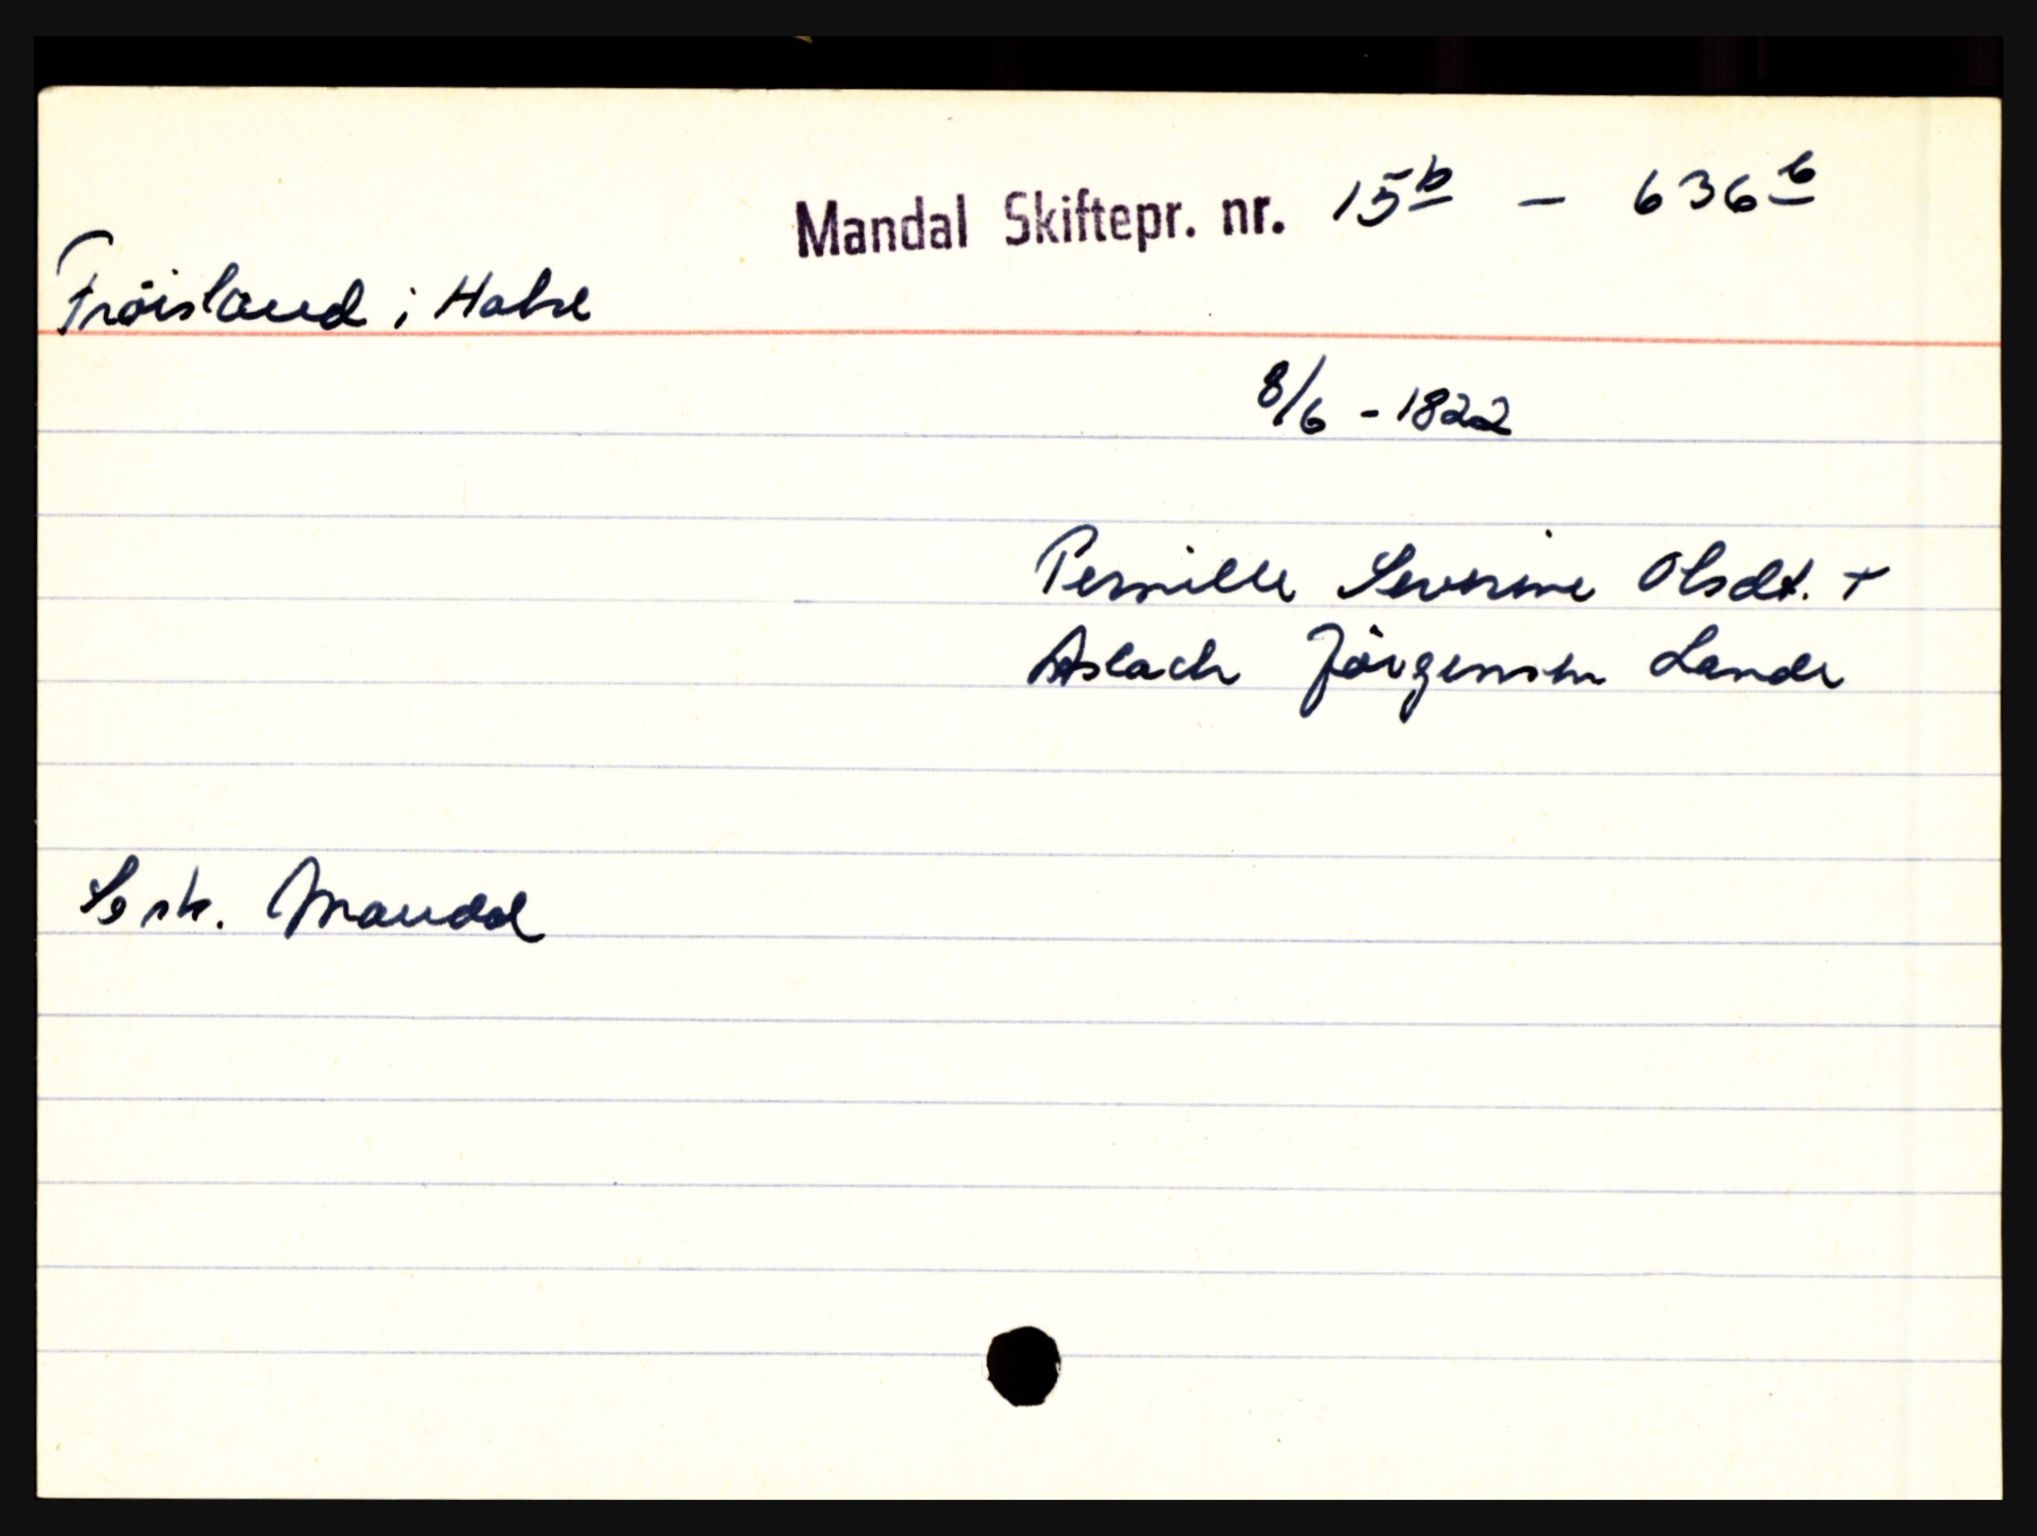 Mandal Skiftepr. nr. 15b - 636b
Fröisland i Halse
8/6 - 1822
Pernille Severine Olsdt. +
Aslach Jörgensen Lande
Se sk. Mandal